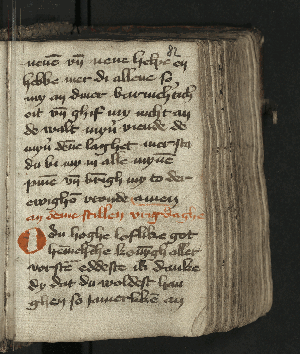 neuen vn neue liche en
hebbe wer di allene so
my an diner barmhertich
eit vn ghif my nicht an
de walt myner viende de
myner sele laghet mer sta
du bi my in alle myne
pine vn bringh my to der
ewighen vroude amen
an deme stillen vrigdaghe
O du hoghe loflike got
hemelsche konnigh aller
vorsten eddeste ik danke
dy dat du woldest han
ghen so jamerliken an